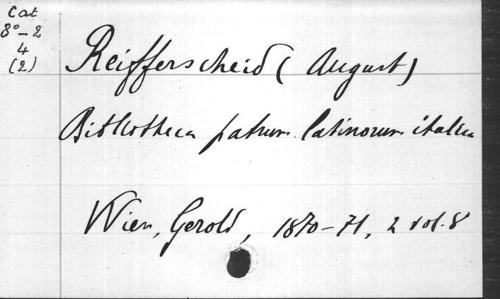 Cat
8°-2
4
(2)
Reifferscheid (August)
Bibliotheca patrum latinorum italica
Wien, Gerold, 1870-71, 2 vol. 8°